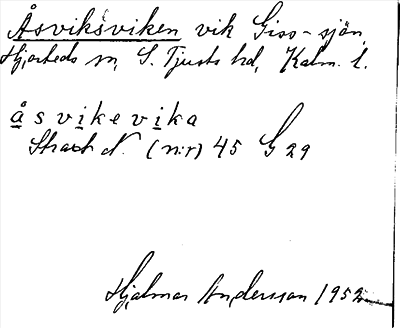 Åsviksviken vik Giss-sjön,
Hjorteds sn, S. Tjusts hd, Kalm. l.
åsvikevika
Strax N. (nr) 45 G 29
Hjalmar Andersson 1952